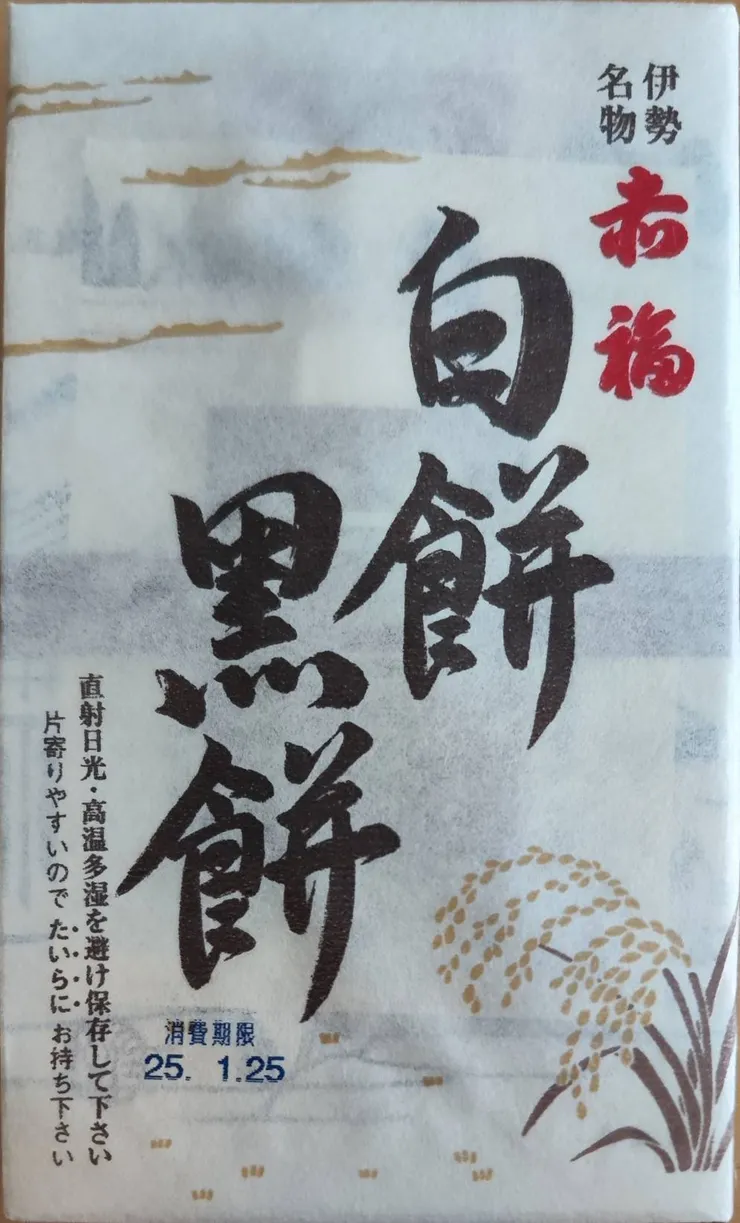 伊勢
名物
赤福
白餅
黒餅
直射日光・高温多湿を避け保存して下さい
片寄りやすいので たいらに お持ち下さい
消費期限
25. 1.25